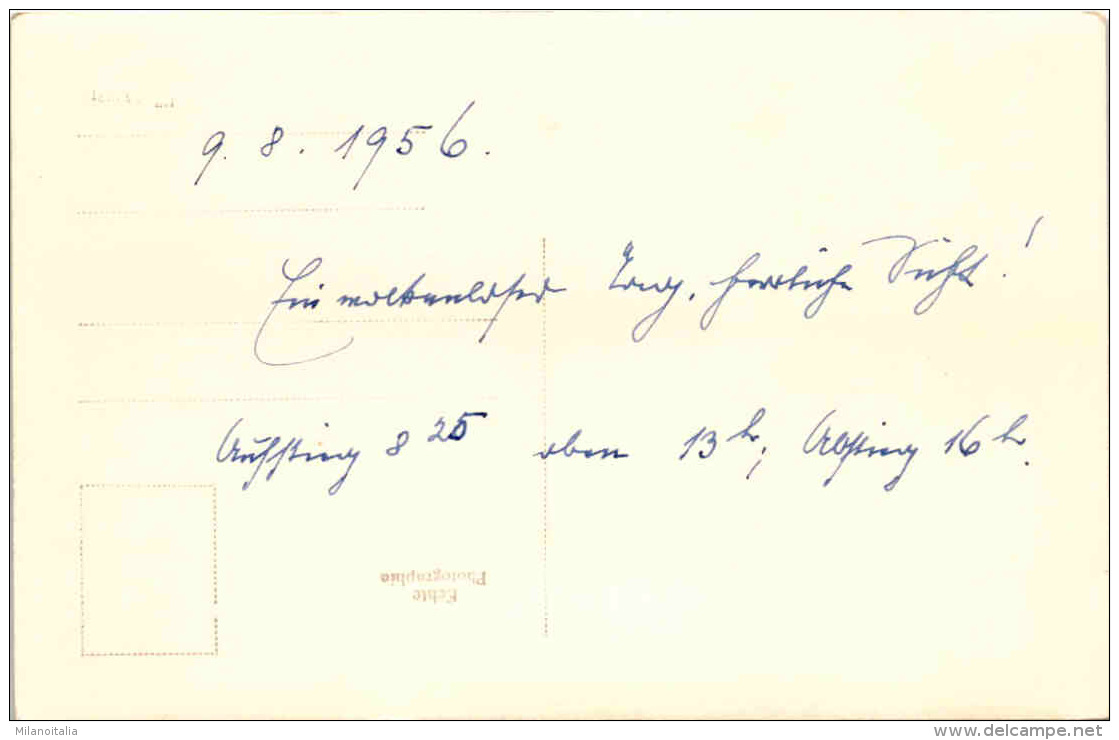 9. 8. 1956.
Ein wolkenloser Tag, herrliche Sicht!
Aufstieg 8 25 oben 13 h; Abstieg 16 h.
Echte
Photographie
Milanoitalia
delcampe.net